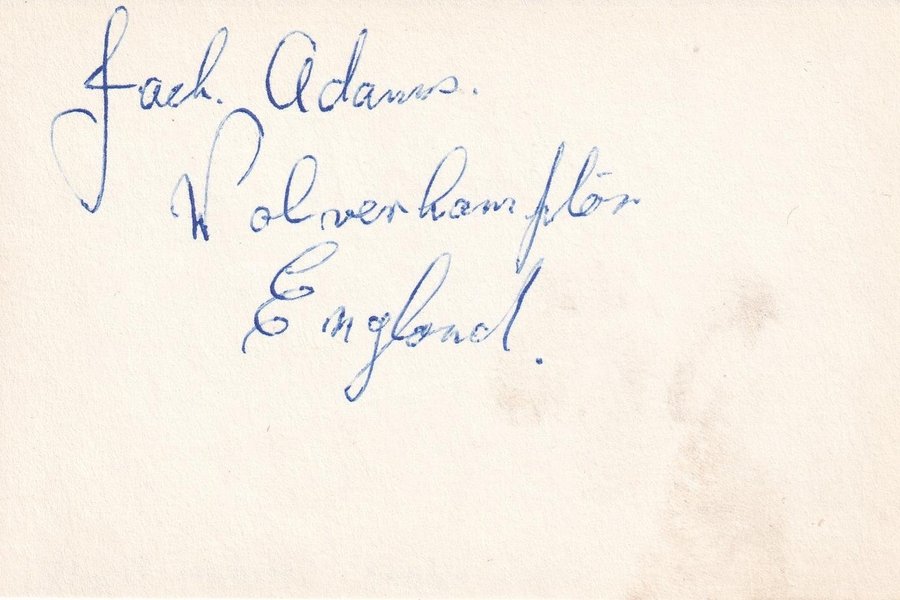 Jack. Adams.
Wolverhampton
England.